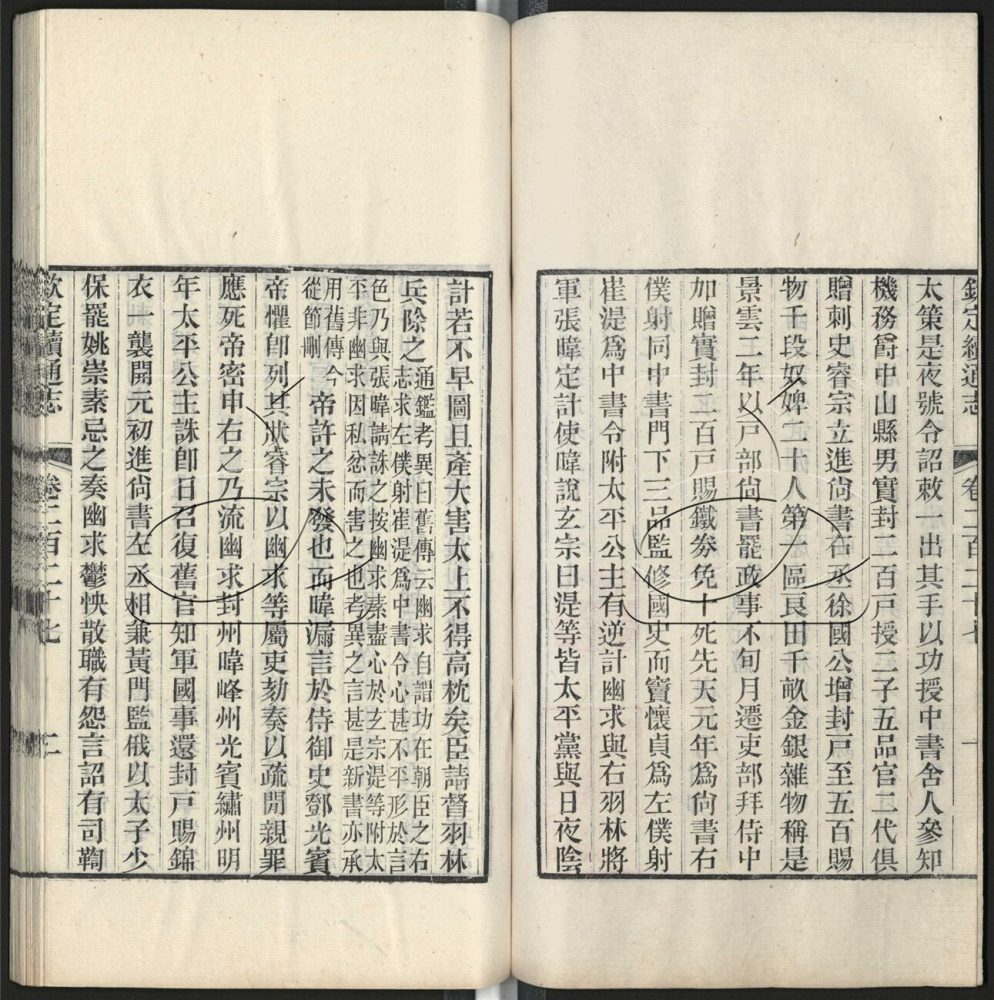 欽定續通志 卷二百二十七 一
太策是夜號令詔敕一出其手以功授中書舍人參知
機務爵中山縣男實封二百戸授二子五品官二代俱
贈刺史睿宗立進尙書右丞徐國公增封戸至五百賜
物千段奴婢二十人第一區良田千畝金銀雜物稱是
景雲二年以戸部尙書罷政事不旬月遷吏部拜侍中
加贈實封二百戸賜鐵券免十死先天元年爲尙書右
僕射同中書門下三品監修國史而竇懷貞爲左僕射
崔湜爲中書令附太平公主有逆計幽求與右羽林將
軍張暐定計使暐說玄宗曰湜等皆太平黨與日夜陰
計若不早圖且產大害太上不得高枕矣臣請督羽林
兵除之通鑑考異曰舊傳云幽求自謂功在朝臣之右
志求左僕射崔湜爲中書令心甚不平形於言
色乃與張暐請誅之按幽求素盡心於玄宗湜等附太
平非幽求因私忿而害之也考異之言甚是新書亦承
用舊傳今
從節刪帝許之未發也而暐漏言於侍御史鄧光賓
帝懼卽列其狀睿宗以幽求等屬吏劾奏以疏閒親罪
應死帝密申右之乃流幽求封州暐峰州光賓繡州明
年太平公主誅卽日召復舊官知軍國事還封戸賜錦
衣一襲開元初進尙書左丞相兼黃門監俄以太子少
保罷姚崇素忌之奏幽求鬱怏散職有怨言詔有司鞫
欽定續通志 卷二百二十七 二